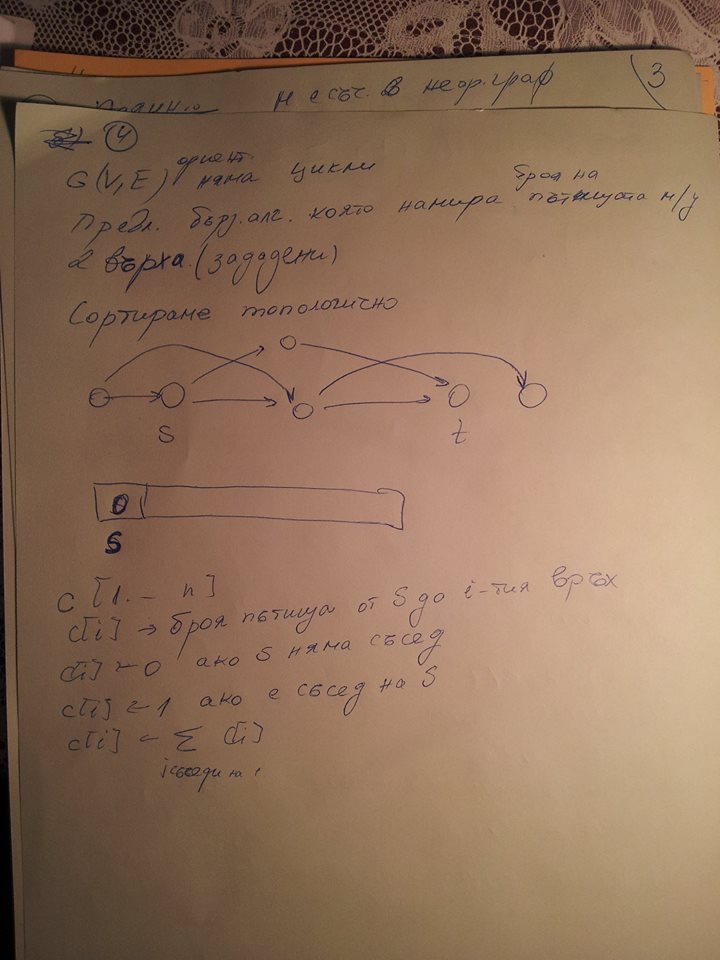 3
н есъс. в неор. граф
4
G(V,E) ориент. няма цикли
Предл. бърз. алг. която намира броя на пътищата м/у
2 върха. (зададени)
Сортиране топологично
s
t
0
S
C [1. – n]
c[i] → броя пътища от S до i-тия връх
c[i] ← 0 ако S няма съсед
c[i] ← 1 ако е съсед на S
c[i] ← Σ c[i]
i съседи на i